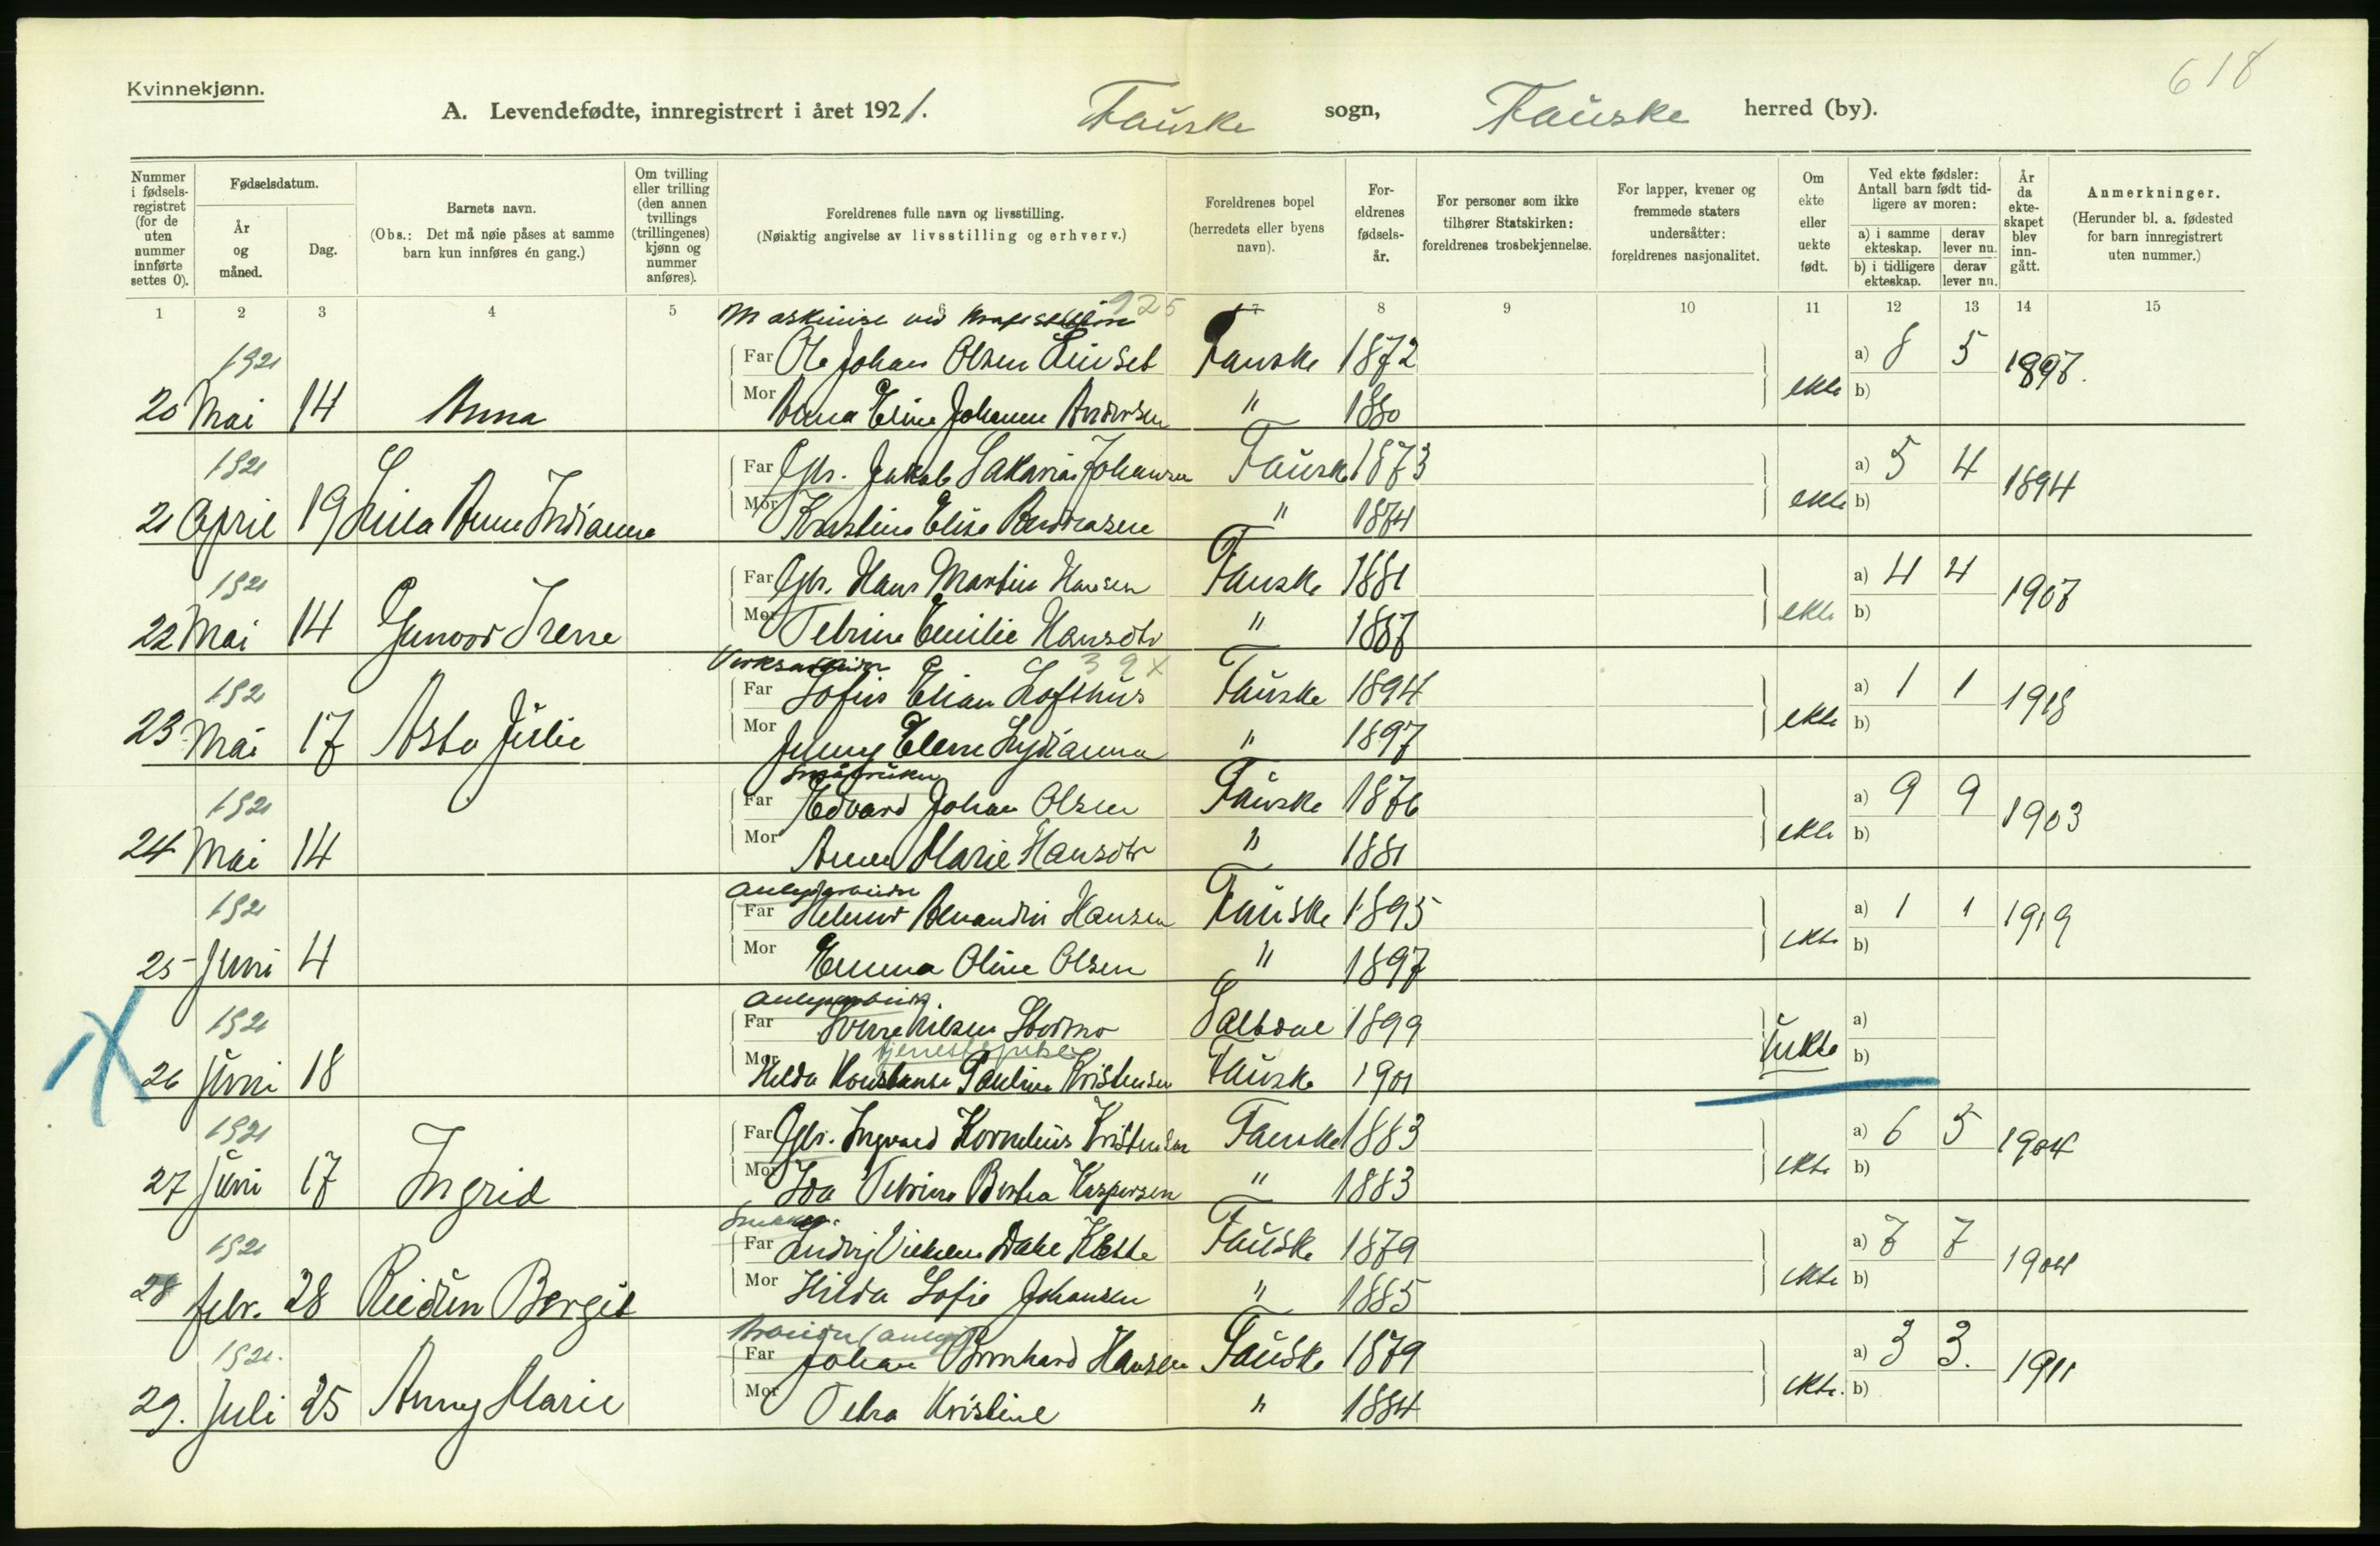 618
Kvinnekjønn.
A. Levendefødte, innregistrert i året 1921. Fauske sogn, Fauske herred (by).
Nummer i fødsels-registret (for de uten nummer innførte settes 0).
Fødselsdatum.
År og måned.
Dag.
Barnets navn.
(Obs.: Det må nøie påses at samme barn kun innføres én gang.)
Om tvilling eller trilling (den annen tvillings (trillingenes) kjønn og nummer anføres).
Foreldrenes fulle navn og livsstilling.
(Nøiaktig angivelse av livsstilling og erhverv.)
Foreldrenes bopel (herredets eller byens navn).
For-eldrenes fødsels-år.
For personer som ikke tilhører Statskirken: foreldrenes trosbekjennelse.
For lapper, kvener og fremmede staters undersåtter: foreldrenes nasjonalitet.
Om ekte eller uekte født.
Ved ekte fødsler: Antall barn født tid-ligere av moren:
a) i samme ekteskap. derav lever nu.
b) i tidligere ekteskap. derav lever nu.
År da ekte-skapet blev inn-gått.
Anmerkninger.
(Herunder bl. a. fødested for barn innregistrert uten nummer.)
1 2 3 4 5 6 7 8 9 10 11 12 13 14 15
925
Maskinist ved
1921 Far Ole Johan Olsen Fauske 1872 a) 8 5 1897
20 Mai 14 Anna Mor Anna Eline Andersen " 1880 ekte b)
1921 Far Gbr. Jakob Sakarias Johansen Fauske 1873 a) 5 4 1894
21 April 19 Mor Kristine Elise " 1874 ekte b)
1921 Far Gbr. Hans Martin Hansen Fauske 1881 a) 4 4 1907
22 Mai 14 Gunvor Irene Mor Petrine Emilie Hansdtr " 1887 ekte b)
39 x
192 Far Sofus Elian Lofthus Fauske 1894 a) 1 1 1918
23 Mai 17 Asta Julie Mor Jenny Elene Lydianna " 1897 ekte b)
Småbruker
1921 Far Edvard Johan Olsen Fauske 1876 a) 9 9 1903
24 Mai 14 Mor Anna Marie Hansdtr " 1881 ekte b)
Anlegsarbeider
1921 Far Helmer Hansen Fauske 1895 a) 1 1 1919
25 Juni 4 Mor Emma Oline Olsen " 1897 ekte b)
Anlegsarbeid.
1921 Far Sverre Nilsen Stormo Saltdal 1899 a)
tjenestepike
26 Juni 18 Mor Hilda Konstanse Pauline Kristensen Fauske 1901 uekte b)
1921 Far Gbr. Ingvard Kornelius Kristensen Fauske 1883 a) 6 5 1904
27 Juni 17 Ingrid Mor Ida Petrine Berta Kaspersen " 1883 ekte b)
1921 Far Ludvig Dahl Fauske 1879 a) 7 7 1904
28 febr. 28 Reidun Bergit Mor Hilda Sofie Johansen " 1885 ekte b)
Arbeider (anleg)
1921. Far Johan Bernhard Hansen Fauske 1879 a) 3 3. 1911
29. Juli 25 Anny Marie Mor Petra Kristine " 1884 ekte. b)